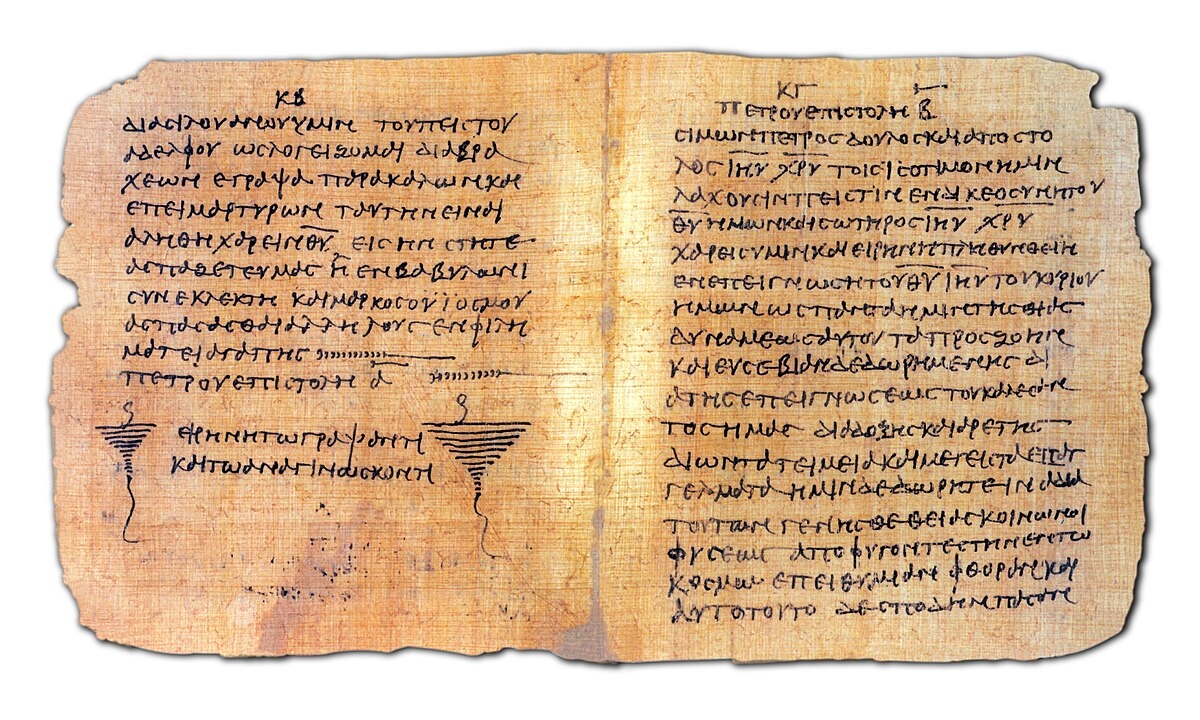 ΚΒ
ΔΙΑϹΙΛΟΥΑΝΩΥΥΜΙΝ ΤΟΥΠΕΙϹΤΟΥ
ΑΔΕΛΦΟΥ ΩϹΛΟΓΕΙΖΟΜΑΙ ΔΙΑΒΡΑ
ΧΕΩΝ ΕΓΡΑΨΑ ΠΑΡΑΚΑΛΩΝΚΑΙ
ΕΠΕΙΜΑΡΤΥΡΩΝ ΤΑΥΤΗΝΕΙΝΑΙ
ΑΛΗΘΗΧΑΡΕΙΝΘ̅Υ̅ ΕΙϹΗΝϹΤΗΤΕ
ΑϹΠΑΖΕΤΕΥΜΑϹ Η ΕΝΒΑΒΥΛΩΝΙ
ϹΥΝΕΚΛΕΚΤΗ ΚΑΙΜΑΡΚΟϹΟΥΙΟϹΜΟΥ
ΑϹΠΑϹΑϹΘΑΙΑΛΛΗΛΟΥϹΕΝΦΙΛΗ
ΜΑΤΕΙΑΓΑΠΗϹ
ΠΕΤΡΟΥΕΠΙϹΤΟΛΗ Α̅
ΕΙΡΗΝΗΤΩΓΡΑΨΑΝΤΙ
ΚΑΙΤΩΑΝΑΓΙΝΩϹΚΟΝΤΙ
ΚΓ
ΠΕΤΡΟΥΕΠΙϹΤΟΛΗ Β̅
ϹΙΜΩΝΠΕΤΡΟϹΔΟΥΛΟϹΚΑΙΑΠΟϹΤΟ
ΛΟϹΙ̅Η̅Υ̅ Χ̅Ρ̅Υ̅ ΤΟΙϹΙϹΟΤΙΜΟΝΗΜΙΝ
ΛΑΧΟΥϹΙΝΠΕΙϹΤΙΝ ΕΝΔΙΚΕΟϹΥΝΗΤΟΥ
Θ̅Υ̅ΗΜΩΝΚΑΙϹΩΤΗΡΟϹΙ̅Η̅Υ̅ Χ̅Ρ̅Υ̅
ΧΑΡΕΙϹΥΜΙΝΚΑΙΕΙΡΗΝΗΠΛΗΘΥΝΘΕΙΗ
ΕΝΕΠΕΙΓΝΩϹΗΤΟΥΘ̅Υ̅Ι̅Η̅Υ̅ΤΟΥΚΥΡΙΟΥ
ΗΜΩΝΩϹΠΑΝΤΑΗΜΙΝΤΗϹΘΙΑϹ
ΔΥΝΑΜΕΩϹΑΥΤΟΥ ΤΑΠΡΟϹΖΩΗΝ
ΚΑΙΕΥϹΕΒΙΑΝΔΕΔΩΡΗΜΕΝΗϹ ΔΙ
ΑΤΗϹΕΠΕΙΓΝΩϹΕΩϹΤΟΥΚΑΛΕϹΑΝ
ΤΟϹΗΜΑϹ ΔΙΑΔΟΞΗϹΚΑΙΑΡΕΤΗϹ
ΔΙΩΝΤΑΤΕΙΜΕΙΑΚΑΙΜΕΓΕΙϹΤΑΕΠΑΓ
ΓΕΛΜΑΤΑ ΗΜΙΝΔΕΔΩΡΗΤΕΙΝΑΔΙΑ
ΤΟΥΤΩΝΓΕΝΗϹΘΕΘΕΙΑϹΚΟΙΝΩΝΟΙ
ΦΥϹΕΩϹ ΑΠΟΦΥΓΟΝΤΕϹΤΗΝΕΝΤΩ
ΚΟϹΜΩ ΕΠΕΙΘΥΜΙΑΝ ΦΘΟΡΑΝΚΑΙ
ΑΥΤΟΤΟΥΤΟ ΔΕϹΠΟΔΗΝΠΑϹΑΝ